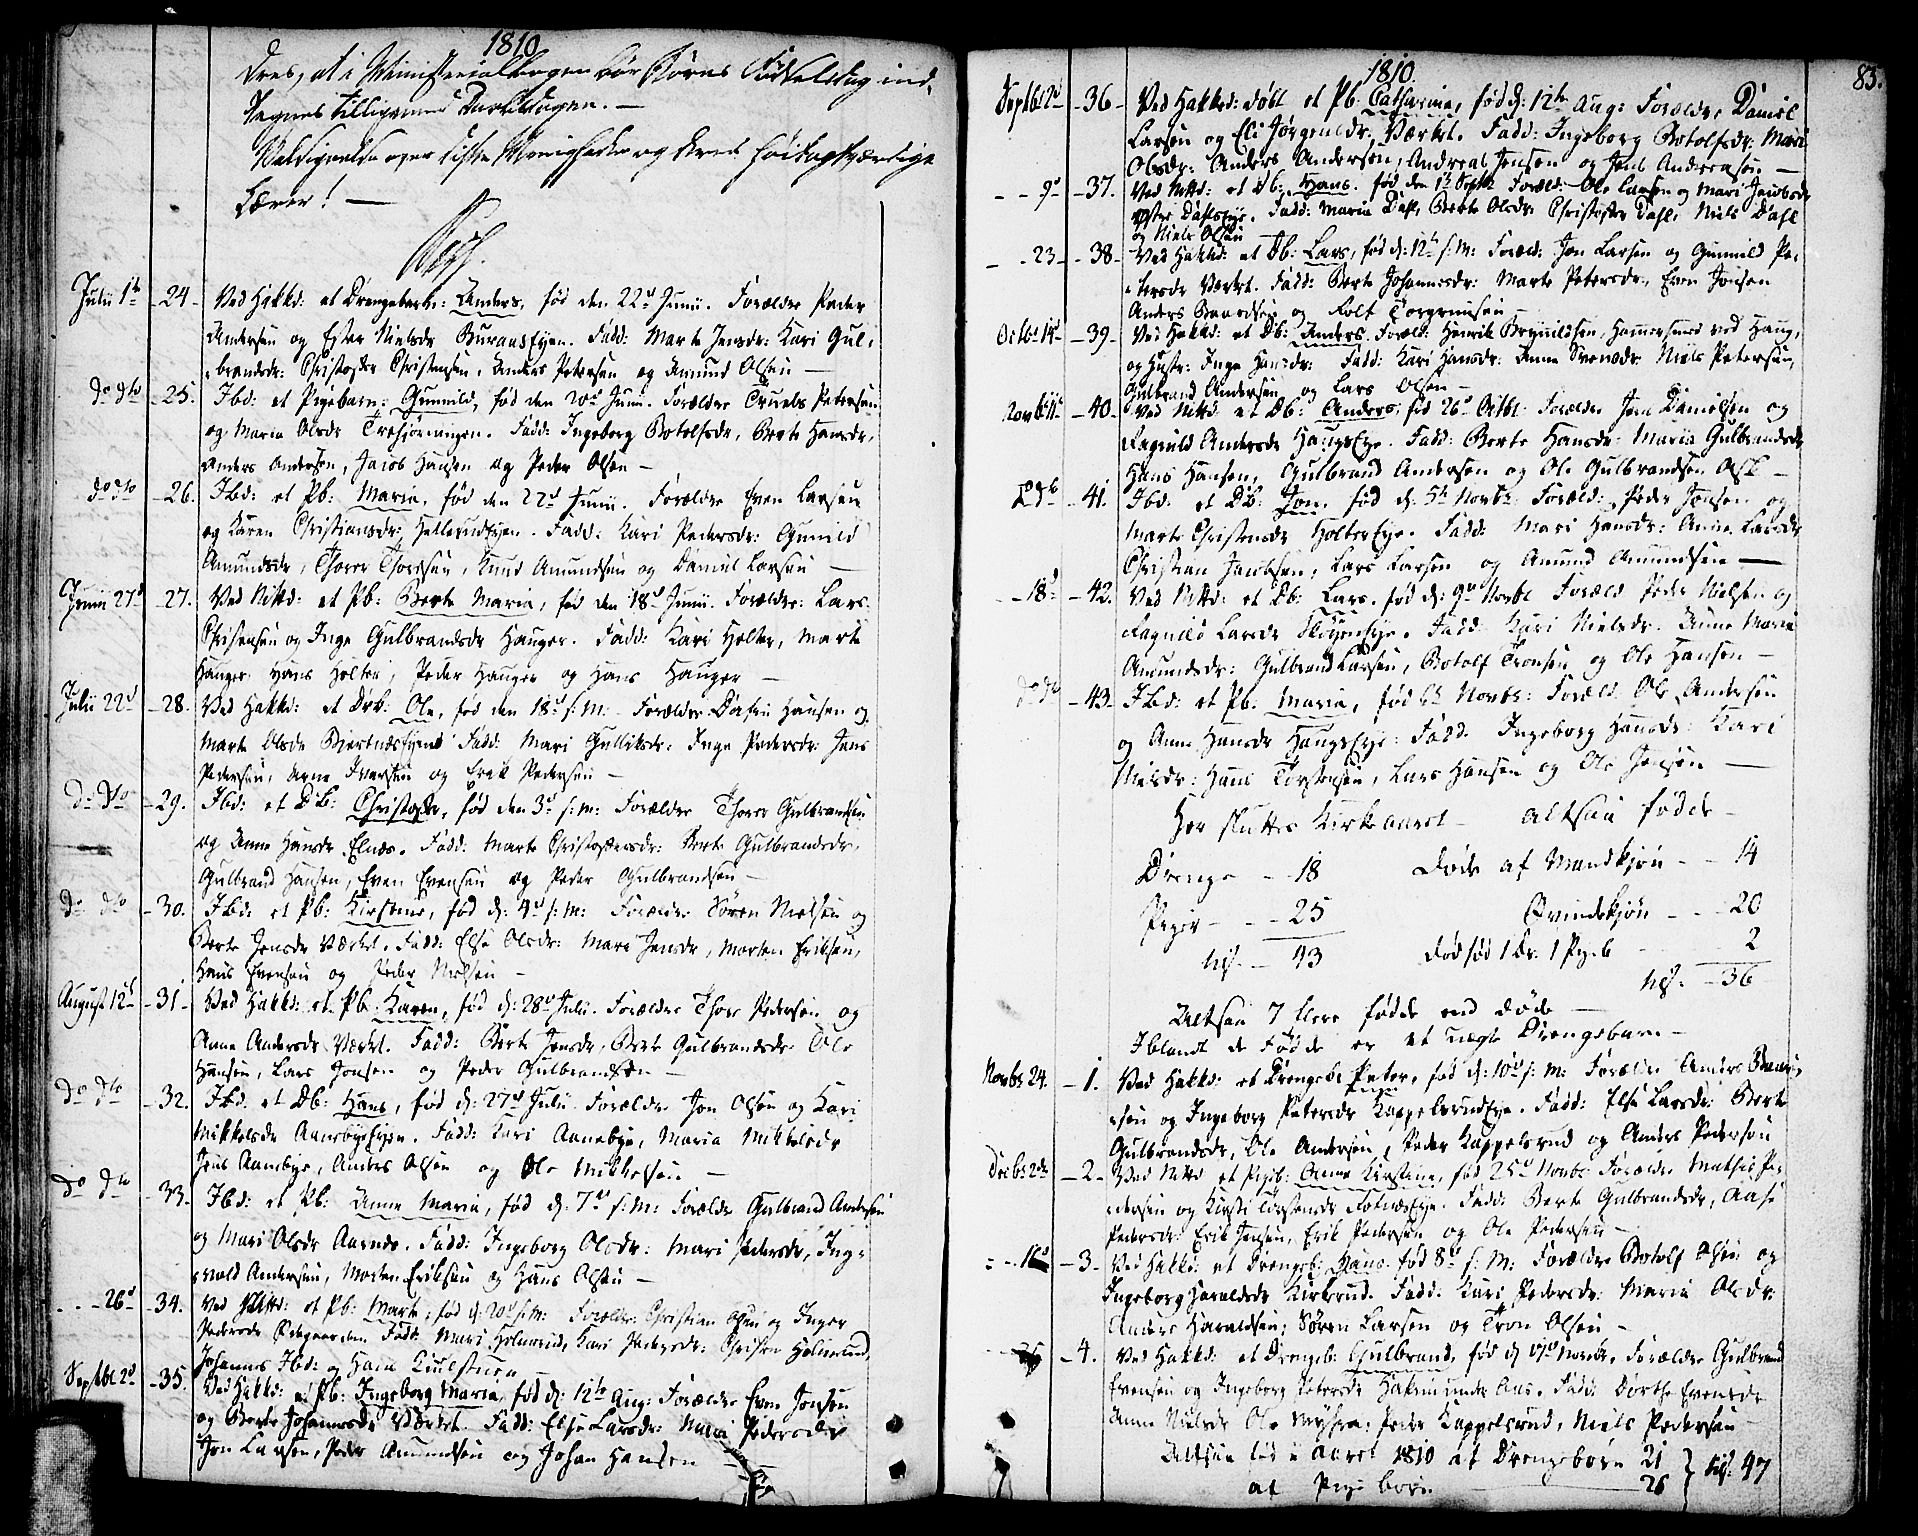 1810
dres, at i Ministerialbogen bør Børns Fødselsdag ind-
tegnes tilligemed Daabsdagen. —
Velsignelse over disse Menigheder og deres høitagtværdige
Lærer! —
Julii 1te -24- Ved Hakkd: et Drengebarn: Anders, fød den 22d Junii. Forældre Peder
Andersen og Ester Nielsdr Buraasejen. Fadd: Marte Jensdr: Kari Gul-
brandsdr: Christopher Christensen, Anders Petersen og Amund Olsen —
do dto -25. Ibd: et Pigebarn: Gunnild, fød den 20d Junii. Forældre Truels Petersen
og Maria Olsdr Trehjørningen. Fadd: Ingeborg Botolfsdr, Berte Hansdr,
Anders Andersen, Jacob Hansen og Peder Olsen —
do dto -26. Ibd: et Pb: Maria, fød den 22d Junii. Forældre Even Larsen
og Karen Christiansdr: Hellerudejen. Fadd: Kari Pedersdr: Gunild
Amundsdr, Thorer Thoresen, Knud Amundsen og Daniel Larsen —
Junii 27d -27. Ved Nittd: et Pb: Berte Maria, fød den 18d Junii. Forældre: Lars
Christensen og Inge Gulbrandsdr Hauger. Fadd: Kari Holter, Marte
Hauger Hans Holter, Peder Hauger og Hans Hauger —
Julii 22d -28. Ved Hakkd: et Drb: Ole, fød den 18d s: M: Forældre Hansen og
Marte Olsdr Bjertnæsejend Fadd: Mari Gulliksdr: Inge Pedersdr: Jens
Pedersen, Arne Iversen og Erik Pedersen —
do dto -29. Ibd: et DB: Christopher, fød den 3d s: M: Forældre Thorer Gulbrandsen
og Anne Hansdr Elnæs. Fadd: Marte Christophersdr: Berte Gulbrandsdr,
Gulbrand Hansen, Even Evensen og Peder Gulbrandsen —
do dto -30. Ibd: et Pb: Kirstine, fød d: 4d s: M: Forældre Søren Nielsen og
Berte Jensdr Værket. Fadd: Else Olsdr: Mari Jensdr, Morten Eriksen,
Hans Evensen og Peder Nielsen —
August 12te -31- Ved Hakkd: et Pb: Karen, fød d: 28d Julii. Forældre Thore Pedersen og
Anne Andersdr Værket. Fadd: Berte Jensdr, Berte Gulbrandsdr Ole
Hansen, Lars Jonsen og Peder Gulbrandsen —
do dto -32. Ibd: et Db: Hans, fød d: 27d Julii. Forældre Jon Olsen og Kari
Mikkelsdr Aanebyeejen. Fadd: Kari Aanebye, Maria Mikkelsdr
Jens Aanebye, Anders Olsen og Ole Mikkelsen —
do dto -33. Ibd: et Pb: Anne Maria, fød d: 7d s: M: Forældre Gulbrand Andersen
og Mari Olsdr Aarnæs. Fadd: Ingeborg Olsdr: Mari Pedersdr, Ing-
vald Andersen, Morten Eriksen og Hans Olsen —
- - -26d -34. Ved Nittd: et Pb: Marte, fød d: 20d s: M: Forældre Christian Olsen og Inger
Pedersdr Ødegaarden Fadd: Mari Holmerud, Kari Pedersdr: Christen Holmerud
Johannes Ibd: og Hans
Septbr 2d -35. Ved Hakkd: et Pb: Ingeborg Maria, fød d: 12te Aug: Forældre Even Jonsen
og Berte Johannesdr Værket. Fadd: Else Larsdr: Mari Pedersdr
Jon Larsen, Peder Amundsen og Johan Hansen —
1810. 83.
Septbr 2d -36- Ved Hakkd: døbt et Pb. Catharina, fød d: 12te Aug: Forældre Daniel
Larsen og Eli Jørgensdr. Værket. Fadd: Ingeborg Botolfsdr: Mari
Olsdr: Anders Andersen, Andreas Jensen og Jens Andersen —
- - 9d -37. Ved Nittd: et Db: Hans. fød den 1te Septbr Foræld: Ole Larsen og Mari Jacobsdr
Dahlseje. Fadd: Maria Dahl, Berte Olsdr Christopher Dahl, Niels Dahl
og Niels Olsen
- -23- -38- Ved Hakkd: et Db: Lars, fød d: 12te s: M: Foræld: Jon Larsen og Gunnild Pe-
tersdr Værket. Fadd: Berte Johannesdr: Marte Petersdr, Even Jonsen
Anders Baardsen og Rolf Torgrimsen
Octbr 14d -39- Ved Hakkd: et Db: Anders. Foræld: Henrik Brynildsen, Hammersmed ved Haug,
og Hustr: Inge Hansdr: Fadd: Kari Hansdr: Anne Svensdr Niels Petersen,
Gulbrand Andersen og Lars Olsen —
Novbr 11te -40- Ved Nittd et Db: Anders, fød 26d Octbr Forældre Jens Danielsen og
Ragnild Andersdr Haugseje. Fadd: Berte Hansdr: Maria Gulbrandsdr
Hans Hansen, Gulbrand Andersen og Ole Gulbrandsen Ask —
-41. Ibd: et DB: Jon, fød d: 5te Novbr: Foræld: Peder Jensen og
Marte Christensdr Holtereje. Fadd: Mari Hansdr: Anne Larsdr
Christian Jacobsen, Lars Larsen og Amund Amundsen —
- -18d -42. Ved Nittd: et Db: Lars. fød d: 9d Novbr Foræld Peder Nielsen og
Ragnild Larsdr Sløyeneje. Fadd: Kari Nielsdr. Anne Maria
Amundsdr: Gulbrand Larsen, Botolf Tronsen og Ole Hansen —
do dto -43- Ibd: et Pb: Maria, fød 6te Novbr: Foræld. Ole Andersen
og Anne Hansdr Haugseje: Fadd: Ingeborg Hansdr: Kari
Nielsdr: Hans Torstensen, Lars Hansen og Ole Jensen —
Her sluttes Kirkeaaret — Altsaa fødde —
Drenge — — 18 Døde af Mandkjøn — — 14
Piger — — 25 Qvindekjøn — — 20
Ns. — 43 Dødfød 1 Dr. 1 Pigeb — — 2
Ns. — 36
Altsaa 7 flere fødde end døde —
Iblandt de Fødde er et uægte Drengebarn —
Novbr 24. -1. Ved Hakkd: et Drengeb: Peter, fød d: 10d s: M: Forældre Anders
sen og Ingeborg Petersdr Kappelsrudeje. Fadd: Else Larsdr: Berte
Gulbrandsdr, Ole Andersen, Peder Kappelsrud og Anders Pedersen
Decbr 2den -2- Ved Nittd et Pigeb: Anne Kirstine, fød 25d Novbr Forældre Mathis Pe-
dersen og Kirsti Torstensdr . Fadd: Berte Gulbrandsdr, Aase
Pedersdr Erik Jensen, Erik Pedersen og Ole Pedersen —
- - 16d -3- Ved Hakkd: et Drengeb: Hans. fød 8d s: M: Forældre Botolf Olsen og
Ingeborg Haraldsdr Kirkerud. Fadd: Kari Pedersdr: Maria Olsdr
Anders Haraldsen, Søren Larsen og Tron Olsen —
-4. Ved Hakkd: et Drengeb: Gulbrand, fød d 17d Novbr. Forældre Gulbrand
Evensen og Ingeborg Petersdr Aas. Fadd: Dorthe Evensdr
Anne Nielsdr Ole Myhra, Peder Kappelsrud, Niels Pedersen
Altsaa fød i Aaret 1810 af Drengebørn 21
af Pigebørn — 26 } Ns. 47